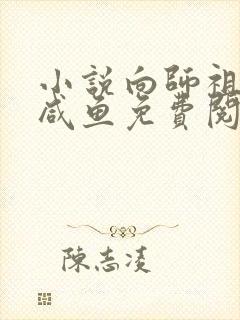 小說向師祖
咸魚免費閱
陳志凌